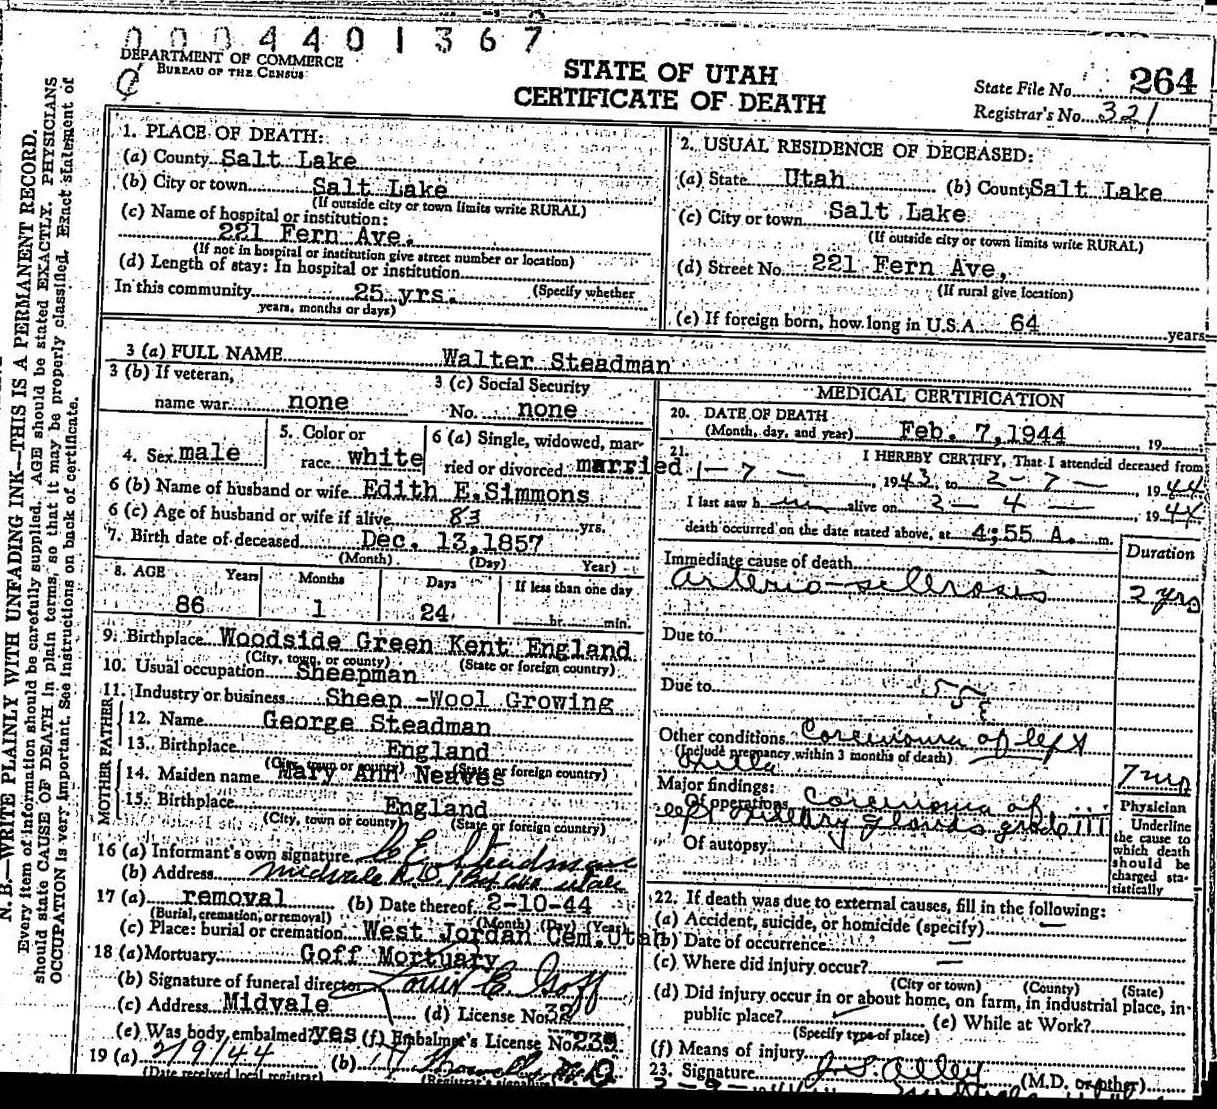 0004401367
DEPARTMENT OF COMMERCE
BUREAU OF THE CENSUS
STATE OF UTAH
CERTIFICATE OF DEATH
State File No. 264
Registrar's No. 321
N. B.—WRITE PLAINLY WITH UNFADING INK—THIS IS A PERMANENT RECORD.
Every item of information should be carefully supplied. AGE should be stated EXACTLY. PHYSICIANS
should state CAUSE OF DEATH in plain terms, so that it may be properly classified. Exact statement of
OCCUPATION is very important. See instructions on back of certificate.
1. PLACE OF DEATH:
(a) County Salt Lake
(b) City or town Salt Lake
(If outside city or town limits write RURAL)
(c) Name of hospital or institution:
221 Fern Ave.
(If not in hospital or institution give street number or location)
(d) Length of stay: In hospital or institution
In this community 25 yrs. (Specify whether
years, months or days)
2. USUAL RESIDENCE OF DECEASED:
(a) State Utah (b) County Salt Lake
(c) City or town Salt Lake
(If outside city or town limits write RURAL)
(d) Street No. 221 Fern Ave.
(If rural give location)
(e) If foreign born, how long in U.S.A. 64 years
3 (a) FULL NAME Walter Steadman
3 (b) If veteran,
name war none
3 (c) Social Security
No. none
4. Sex male
5. Color or
race white
6 (a) Single, widowed, mar-
ried or divorced married
6 (b) Name of husband or wife Edith E. Simmons
6 (c) Age of husband or wife if alive 83 yrs.
7. Birth date of deceased Dec. 13, 1857
(Month) (Day) Year)
8. AGE Years Months Days If less than one day
86 1 24 hr. min.
9. Birthplace Woodside Green Kent England
(City, town, or county) (State or foreign country)
10. Usual occupation Sheepman
11. Industry or business Sheep-Wool Growing
FATHER
12. Name George Steadman
13. Birthplace England
(City, town or county) (State or foreign country)
MOTHER
14. Maiden name Mary Ann Neaves
15. Birthplace England
(City, town or county) (State or foreign country)
16 (a) Informant's own signature Steadman
(b) Address Midvale R.D. 1 Box Utah
17 (a) removal (b) Date thereof 2-10-44
(Burial, cremation, or removal) (Month) (Day) (Year)
(c) Place: burial or cremation West Jordan Cem. Utah
18 (a) Mortuary Goff Mortuary
(b) Signature of funeral director Louis E. Goff
(c) Address Midvale (d) License No. 32
(e) Was body embalmed? yes (f) Embalmer's License No. 239
19 (a) 2/9/44 (b)
(Date received local registrar) (Registrar's signature)
MEDICAL CERTIFICATION
20. DATE OF DEATH
(Month, day, and year) Feb. 7, 1944, 19
21. I HEREBY CERTIFY, That I attended deceased from
1-7-, 1943, to 2-7-, 1944
I last saw him alive on 2-4-, 1944
death occurred on the date stated above, at 4:55 A. m.
Immediate cause of death Duration
arterio-sclerosis 2 yrs
Due to
Due to
Other conditions Carcinoma of left
(Include pregnancy within 3 months of death)
axilla 7 mo
Major findings:
Of operations Carcinoma of
left axillary glands grade III
Of autopsy
Physician
Underline
the cause to
which death
should be
charged sta-
tistically
22. If death was due to external causes, fill in the following:
(a) Accident, suicide, or homicide (specify) —
(b) Date of occurrence —
(c) Where did injury occur? —
(City or town) (County) (State)
(d) Did injury occur in or about home, on farm, in industrial place, in-
public place? (e) While at Work?
(Specify type of place)
(f) Means of injury
23. Signature J. S. Alley (M.D. or other)